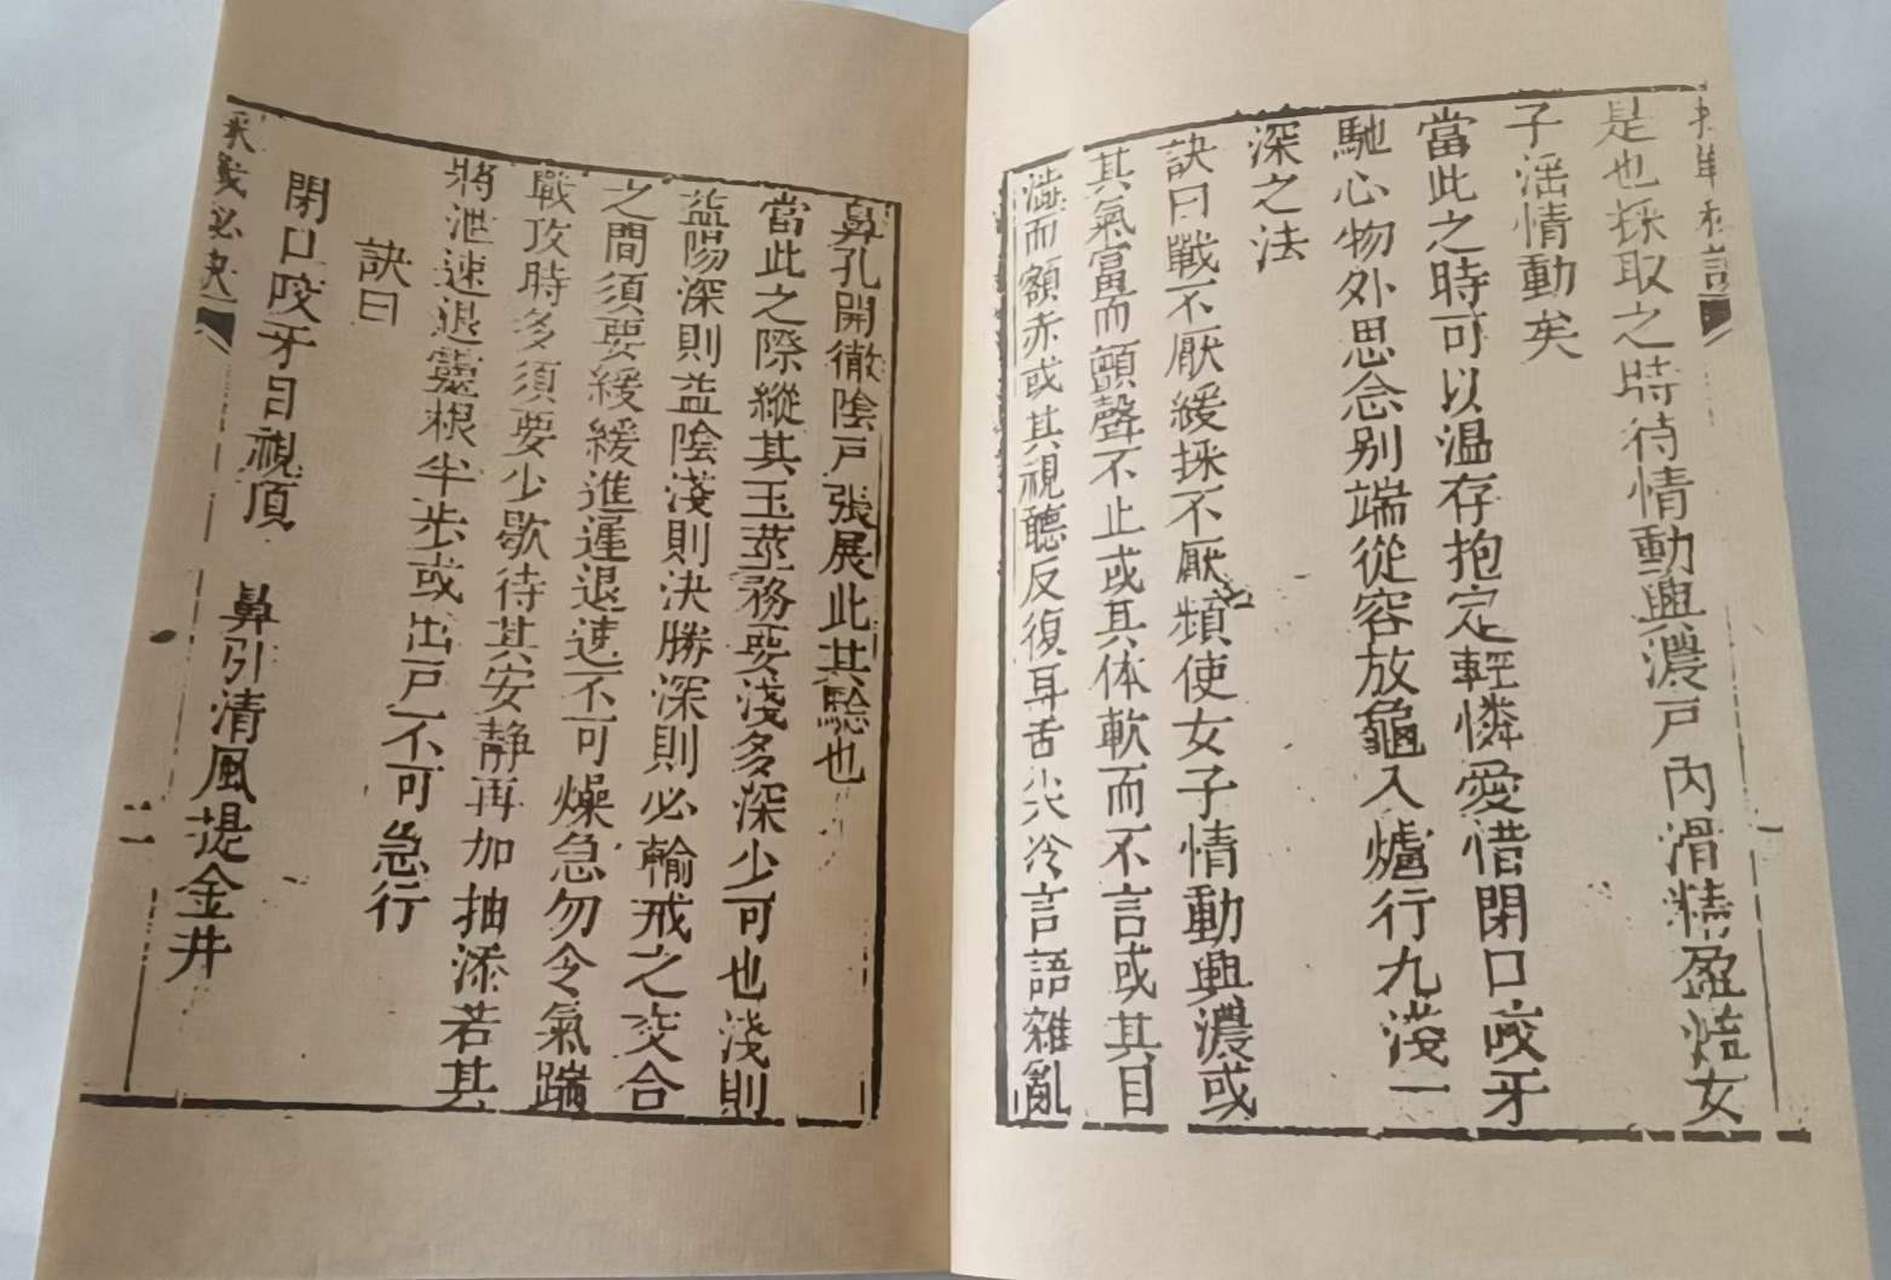 是也採取之時待情動興濃戶內滑精盈焓女
子滛情動矣
當此之時可以温存抱定輕憐愛惜閉口咬牙
馳心物外思念別端從容放龜入爐行九淺一
深之法
訣曰戰不厭緩採不厭頻使女子情動興濃或
其氣富而顫聲不止或其体軟而不言或其目
澁而額赤或其視聽反復耳舌尖冷言語雜亂
鼻孔開徹陰戶張展此其騐也
當此之際縱其玉莖務要淺多深少可也淺則
益陽深則益陰淺則決勝深則必輸戒之交合
之間須要緩緩進遲退速不可燥急勿令氣踹
戰攻時多須要少歇待其安静再加抽添若其
將泄速退靈根半步或出戶不可急行
訣曰
閉口咬牙目視頂 鼻引清風提金井
採戰必訣
二